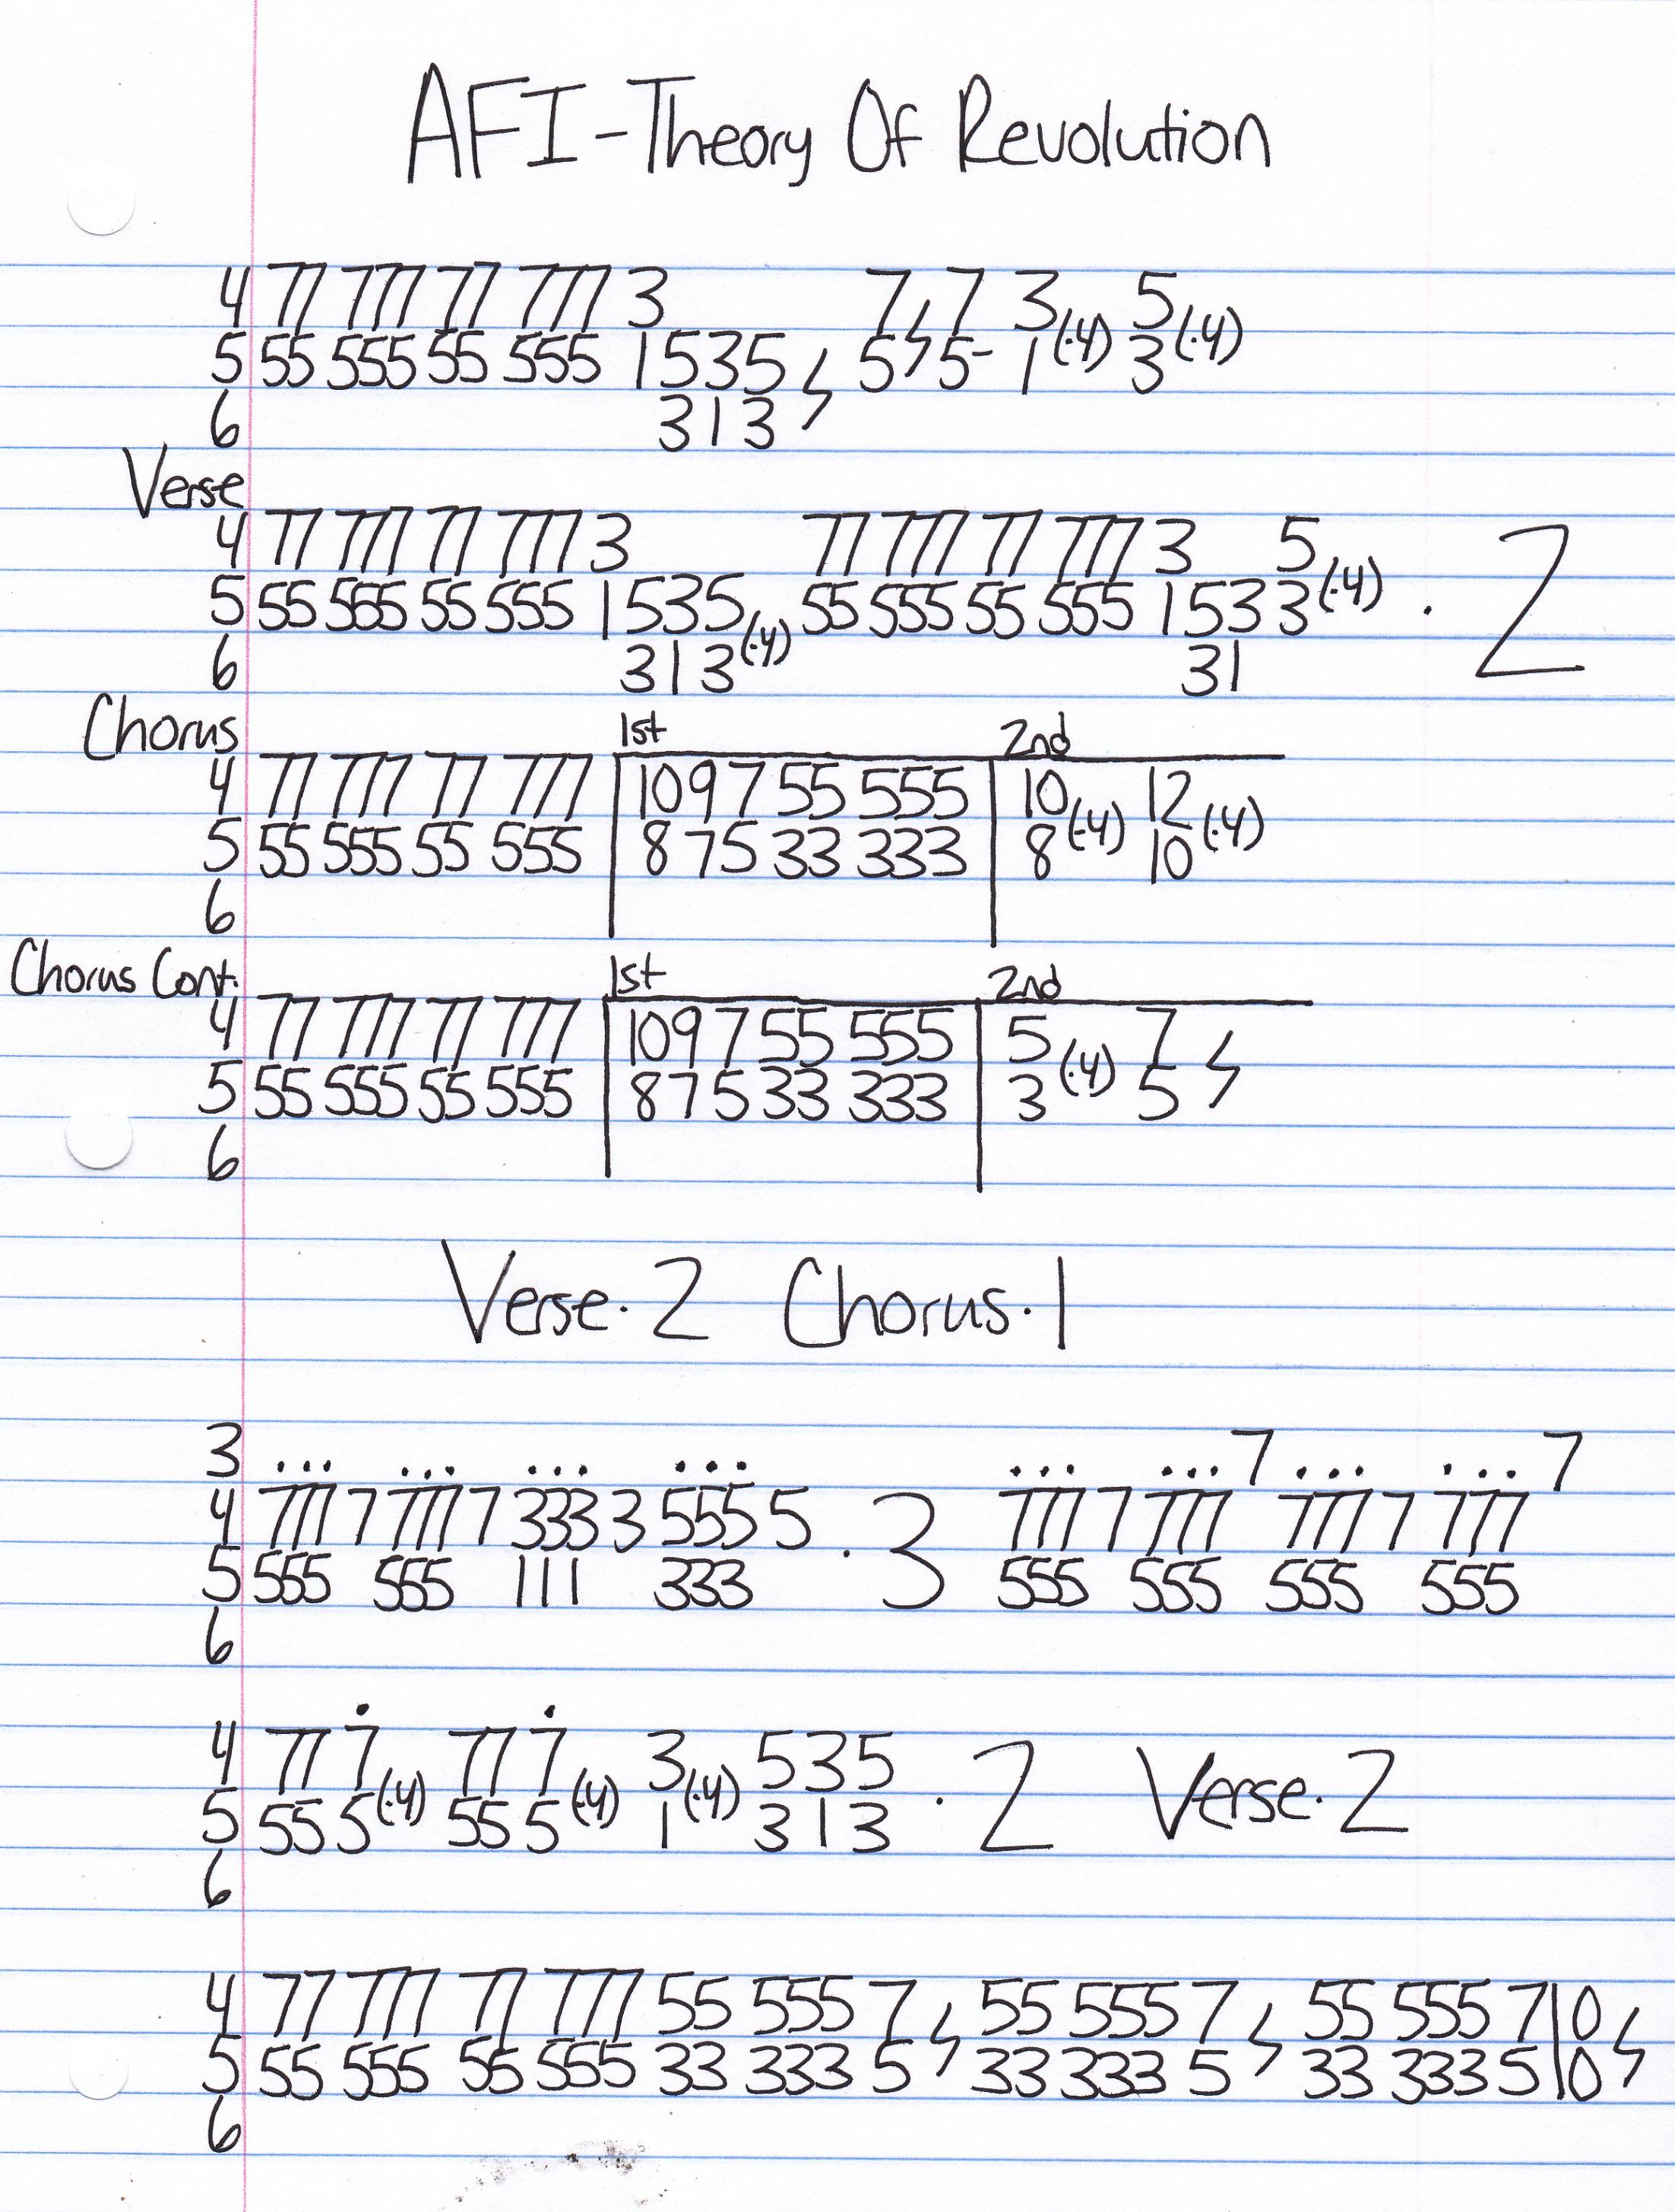 AFI-Theory Of Revolution
4 77 777 77 777 3 7 7 3 5
5 55 555 55 555 1535 5 5- 1(·4) 3(·4)
6 313
Verse
4 77 777 77 777 3 77 777 77 777 3 5
5 55 555 55 555 1535(·4) 55 555 55 555 1533(·4) · 2
6 313 31
Chorus 1st 2nd
4 77 777 77 777 10 9 7 55 555 10 12
5 55 555 55 555 8 7 5 33 333 8(·4) 10(·4)
6
Chorus Cont. 1st 2nd
4 77 777 77 777 10 9 7 55 555 5 7
5 55 555 55 555 8 7 5 33 333 3(·4) 5
6
Verse·2 Chorus·1
3 ... ... ... ... ... ... 7 ... ... 7
4 777 7 777 7 333 3 555 5 · 3 777 7 777 777 7 777
5 555 555 111 333 555 555 555 555
6
4 77 7 77 7 3 535 · 2 Verse·2
5 55 5(·4) 55 5(·4) 1(·4) 313
6
4 77 777 77 777 55 555 7 55 555 7 55 555 7 10
5 55 555 55 555 33 333 5 33 333 5 33 333 5 10
6